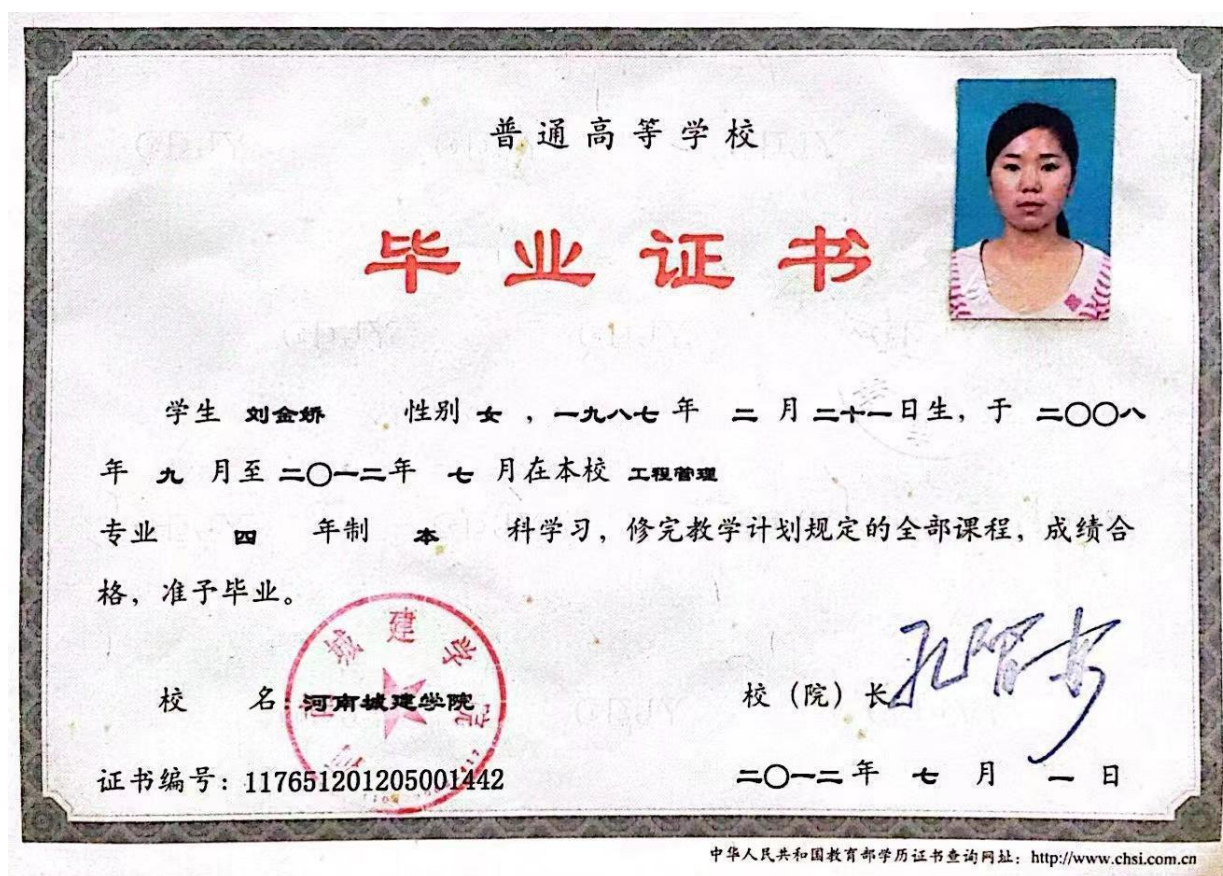 普通高等学校
毕业证书
学生 刘金娇 性别 女 ，一九八七 年 二 月 二十一 日生，于 二〇〇八
年 九 月至 二〇一二 年 七 月在本校 工程管理
专业 四 年制 本 科学习，修完教学计划规定的全部课程，成绩合
格，准予毕业。
校 名：河南城建学院 校（院）长
证书编号：117651201205001442 二〇一二 年 七 月 一 日
中华人民共和国教育部学历证书查询网址：http://www.chsi.com.cn